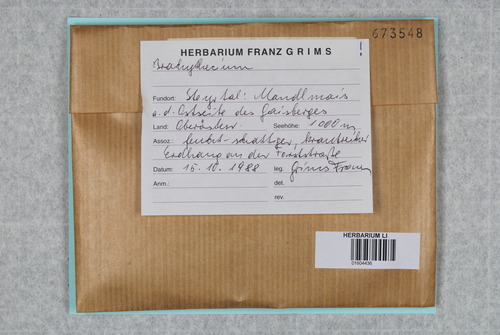 673548
HERBARIUM FRANZ GRIMS
Brachythecium
Fundort: Steyrtal: Mandlmais
a. d. Ostseite des Gaisberges
Land: Oberösterr Seehöhe: 1000 m
Assoz.: feucht-schattiger, krautreicher
Erdhang an der Forststraße
Datum: 15. 10. 1988 leg. Grims Franz
Anm.: det.
rev.
HERBARIUM LI
01604436